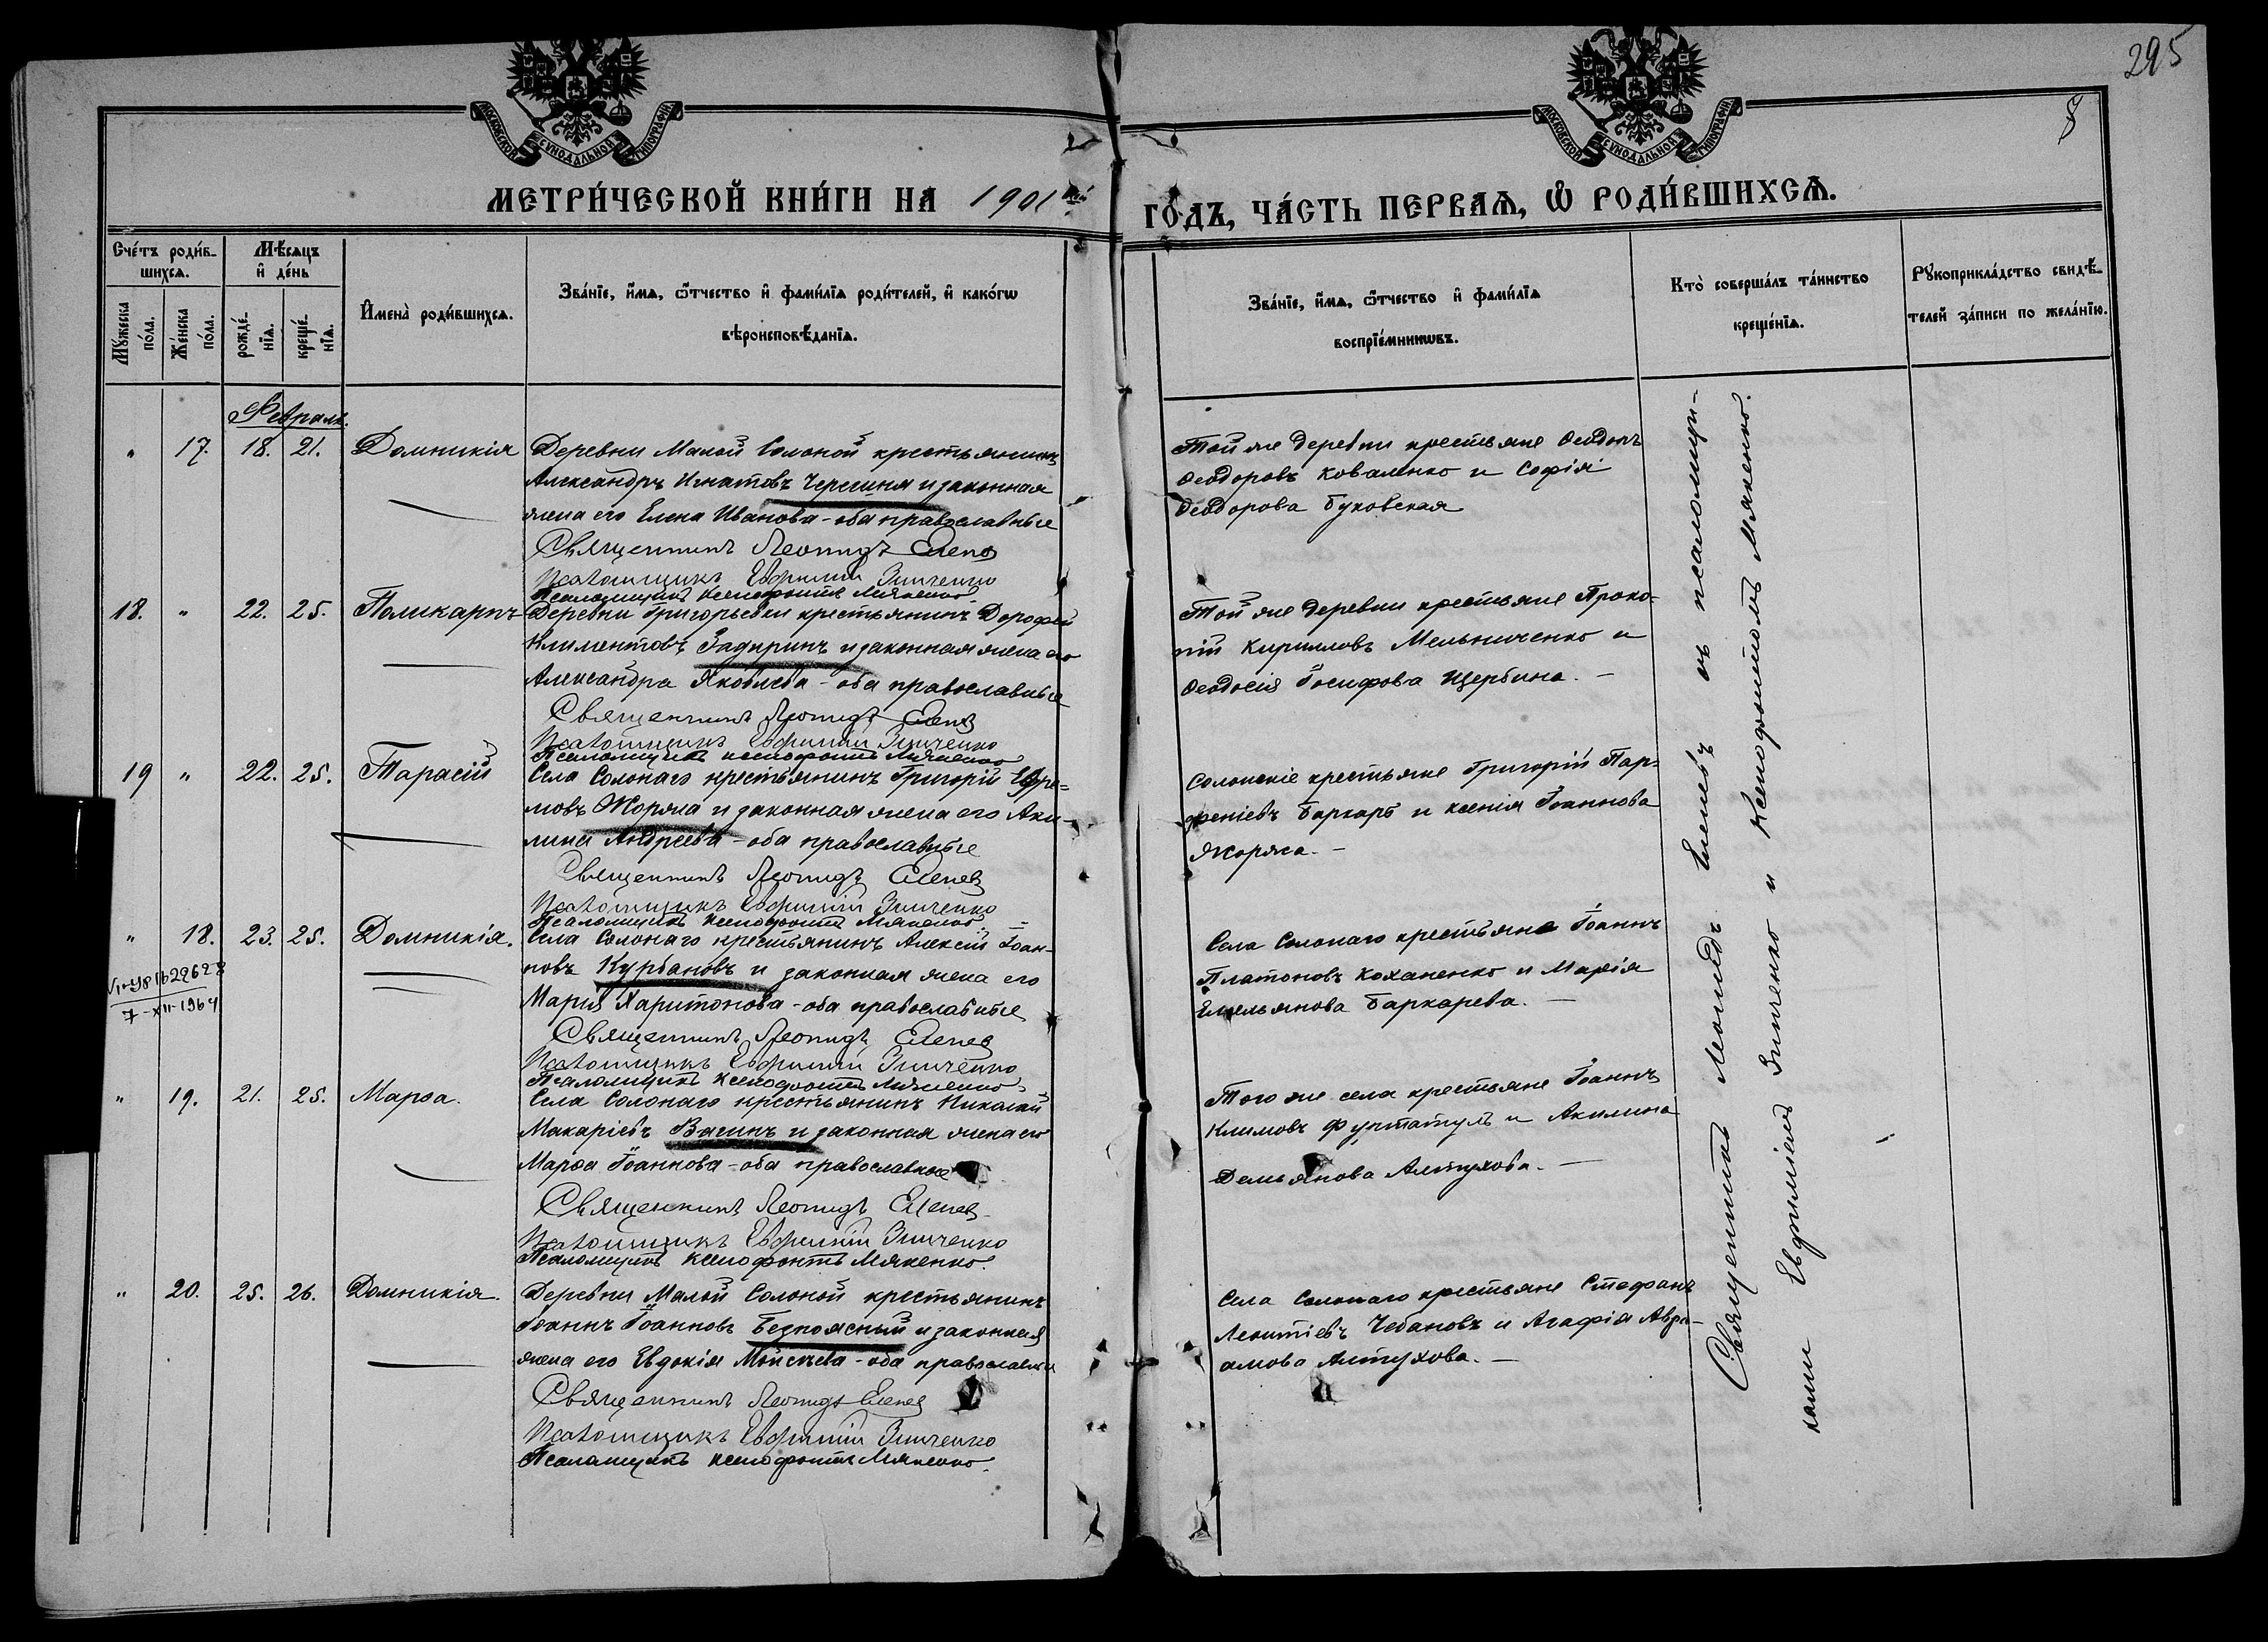 295
8
МОСКОВСКОЙ СУНОДАЛЬНОЙ ТИПОГРАФІИ
МОСКОВСКОЙ СУНОДАЛЬНОЙ ТИПОГРАФІИ
МЕТРИ́ЧЕСКОЙ КНИ́ГИ НА 1901 ый
ГО́ДЪ, ЧА́СТЬ ПЕ́РВАѦ, Ѽ РОДИ́ВШИХСѦ.
Сче́тъ роди́в-
шихсѧ.
Мꙋ́жеска по́ла.
Же́нска по́ла.
Мѣ́сѧцъ
и҆ де́нь
рожде́-
нїѧ.
креще́-
нїѧ.
И҆мена̀ роди́вшихсѧ.
Зва́нїе, и҆́мѧ, ѻ҆́тчество и҆ фами́лїѧ роди́телей, и҆ како́гѡ
вѣроисповѣ́данїѧ.
Зва́нїе, и҆́мѧ, ѻ҆́тчество и҆ фами́лїѧ
воспрїе́мникѡвъ.
Кто̀ соверша́лъ та́инство
креще́нїѧ.
Рꙋкоприкла́дство свидѣ́-
телей за́писи по жела́нїю.
Февраль.
" 17. 18. 21. Домникія
Деревни Малой Солоной крестьянинъ
Александръ Игнатовъ и законная
жена его Елена Иванова - оба православные
Священникъ Леонидъ Еленев
Псаломщикъ Евфимій Зинченко
Псаломщикъ Ксенофонтъ Мякенко
Той же деревни крестьяне
Ѳеодоровъ Коваленко и Софія
Ѳеодорова Буковская
18. " 22. 25. Поликарпъ
Деревни Григорьевки крестьянинъ Дорофей
Климентовъ Задиринъ и законная жена его
Александра Яковлева - оба православные
Священникъ Леонидъ Еленев
Псаломщикъ Евфимій Зинченко
Псаломщикъ Ксенофонтъ Мякенко
Той же деревни крестьяне Проко-
пій Кирилловъ Мельниченко и
Ѳеодосія Іосифова Щербина. -
19 " 22. 25. Тарасій
Села Солонаго крестьянинъ Григорій Ефре-
мовъ Жоряла и законная жена его Аки-
лина Андреева - оба православные
Священникъ Леонидъ Еленев
Псаломщикъ Евфимій Зинченко
Псаломщикъ Ксенофонтъ Мякенко
Солонскіе крестьяне Григорій Пар-
феніевъ Баркарь и Ксенія Іоаннова
Жоряла. -
" 18. 23. 25. Домникія.
7-XII-1964
Села Солонаго крестьянинъ Алексій Іоан-
новъ Курбановъ и законная жена его
Марія Харитонова - оба православные
Священникъ Леонидъ Еленев
Псаломщикъ Евфимій Зинченко
Псаломщикъ Ксенофонтъ Мякенко
Села Солонаго крестьяне Іоаннъ
Платоновъ Коханенко и Марія
Емельянова Баркарева. -
" 19. 21. 25. Марѳа.
Села Солонаго крестьянинъ Николай
Макаріевъ Вагинъ и законная жена его
Марѳа Іоаннова - оба православные
Священникъ Леонидъ Еленев
Псаломщикъ Евфимій Зинченко
Псаломщикъ Ксенофонтъ Мякенко.
Того же села крестьяне Іоаннъ
Климовъ и Акилина
Демьянова Алтухова. -
" 20. 25. 26. Домникія.
Деревни Малой Солоной крестьянинъ
Іоаннъ Іоанновъ Безпоясный и законная
жена его Евдокія Моисеева - оба православные
Священникъ Леонидъ Еленев
Псаломщикъ Евфимій Зинченко
Псаломщикъ Ксенофонтъ Мякенко.
Села Солонаго крестьяне Стефанъ
Леонтіевъ Чебановъ и Агафія Авра-
амова Алтухова. -
Священникъ Леонидъ Еленевъ съ псаломщи-
ками Евфиміемъ Зинченко и Ксенофонтомъ Мякенко.